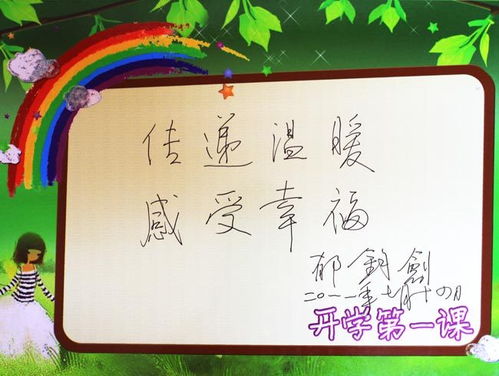 传递温暖
感受幸福
郁鈞劍
二〇一一年七月十四日
开学第一课